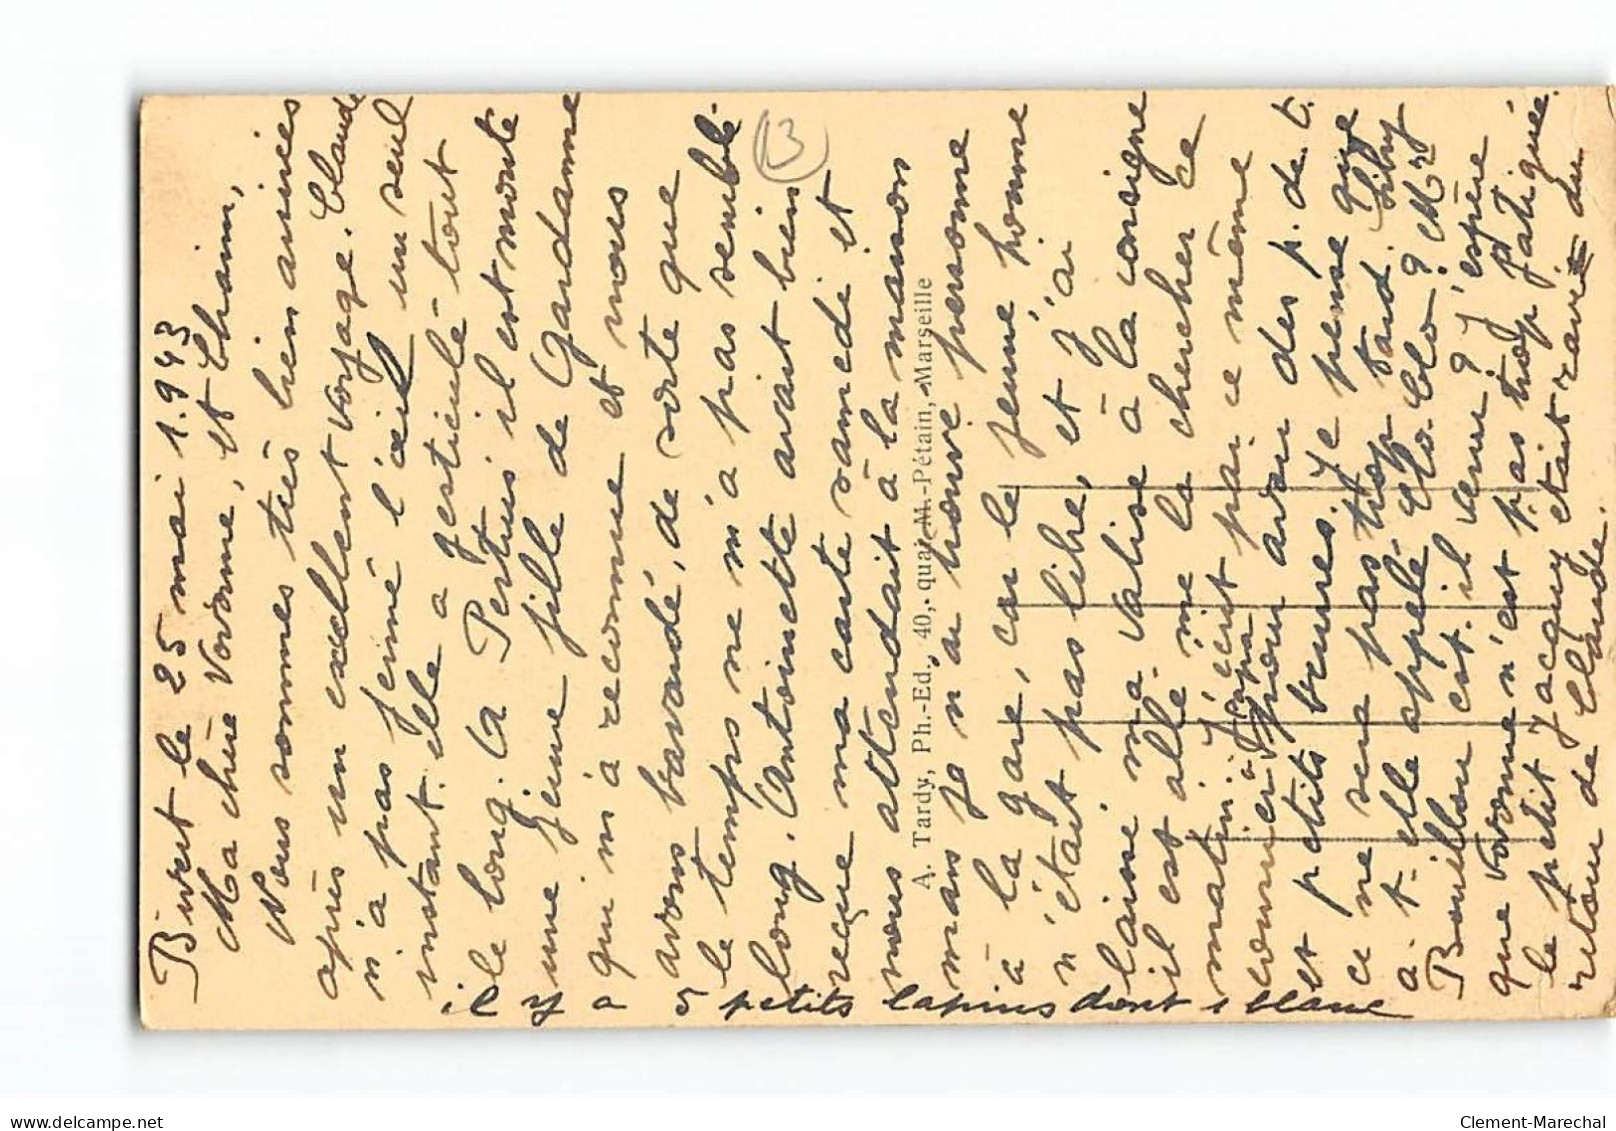 Buvert le 25 mai 1.943
Ma chère Vovonne, et Chaim,
Nous sommes très bien arrivées
après un excellent voyage. Claude
n'a pas fermé l'œil un seul
instant. Elle a gesticulé tout
le long. A Pertuis il est monté
une jeune fille de Gardanne
qui m'a reconnue et nous
avons bavardé, de sorte que
le temps ne m'a pas semblé
long. Antoinette avait bien
reçue ma carte samedi et
nous attendait à la maison
mais je n'ai trouvé personne
à la gare, car le jeune homme
n'était pas libre, et j'ai
laissé ma valise à la consigne
il est allé me la chercher ce
matin. J'écris par ce même
courrier à Papa pour avoir des p. de t.
et petits beurres. Je pense que
ce ne sera pas trop tard.
a-t-elle appelé Clo-Clo ? Mr
Bouillon est-il venu ? J'espère
que Vovonne n'est pas trop fatiguée.
le petit Jacquy était ravi du
retour de Claude.
il y a 5 petits lapins dont 1 blanc
13
A. Tardy, Ph.-Ed., 40, quai M.-Pétain, Marseille
delcampe.net
Clement-Marechal